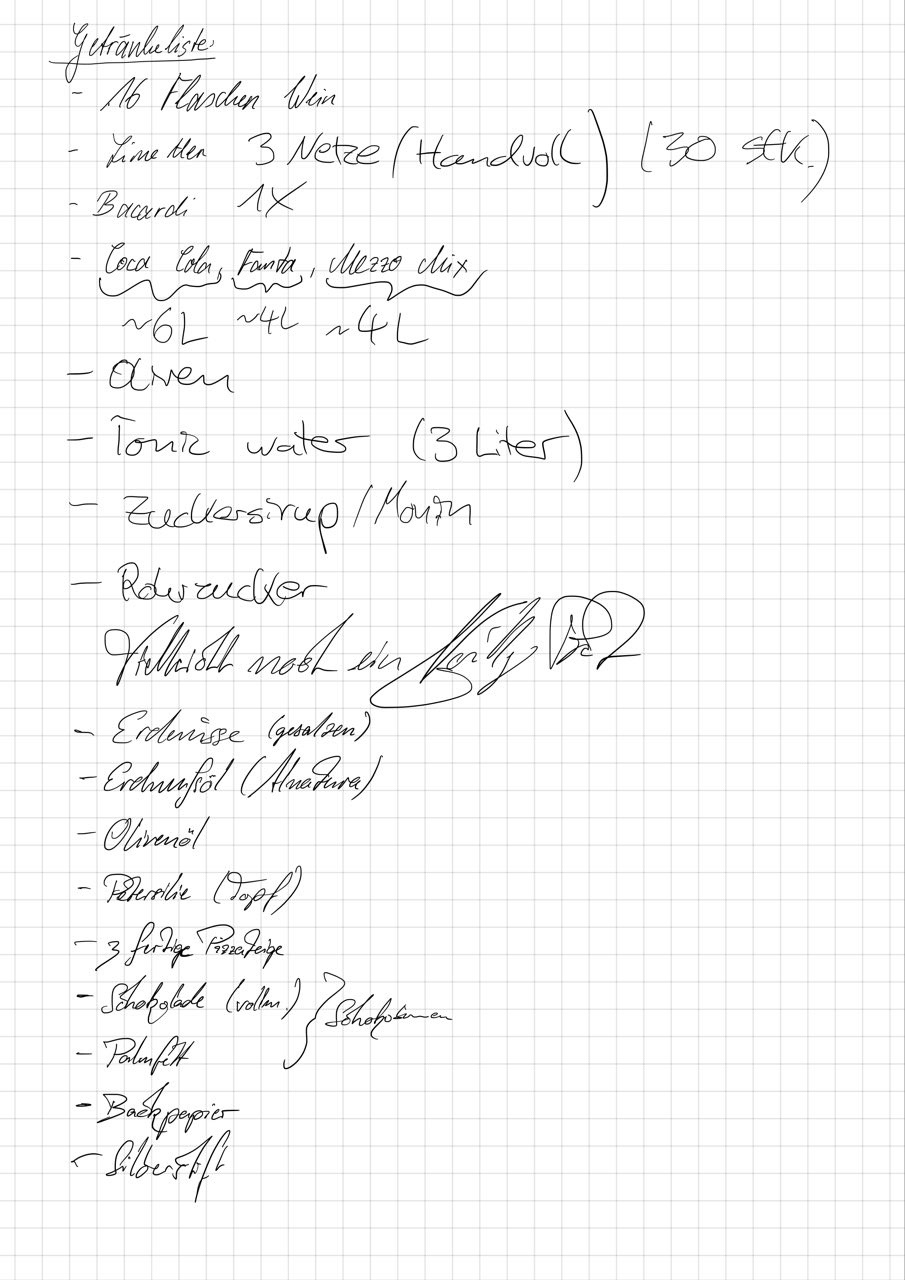 Getränkeliste
- 16 Flaschen Wein
- Limetten 3 Netze (Handvoll) (30 Stk.)
- Bacardi 1X
- Coca Cola, Fanta, Mezzo Mix
~6L ~4L ~4L
- Oliven
- Tonic water (3 Liter)
- Zuckersirup / Monin
- Rohrzucker
Vielleicht noch ein
- Erdnüsse (gesalzen)
- Erdnußöl (Alnatura)
- Olivenöl
- Petersilie (Topf)
- 3 fertige Pizzateige
- Schokolade (vollm.)
- Palmfett
- Backpapier
- Silberstift